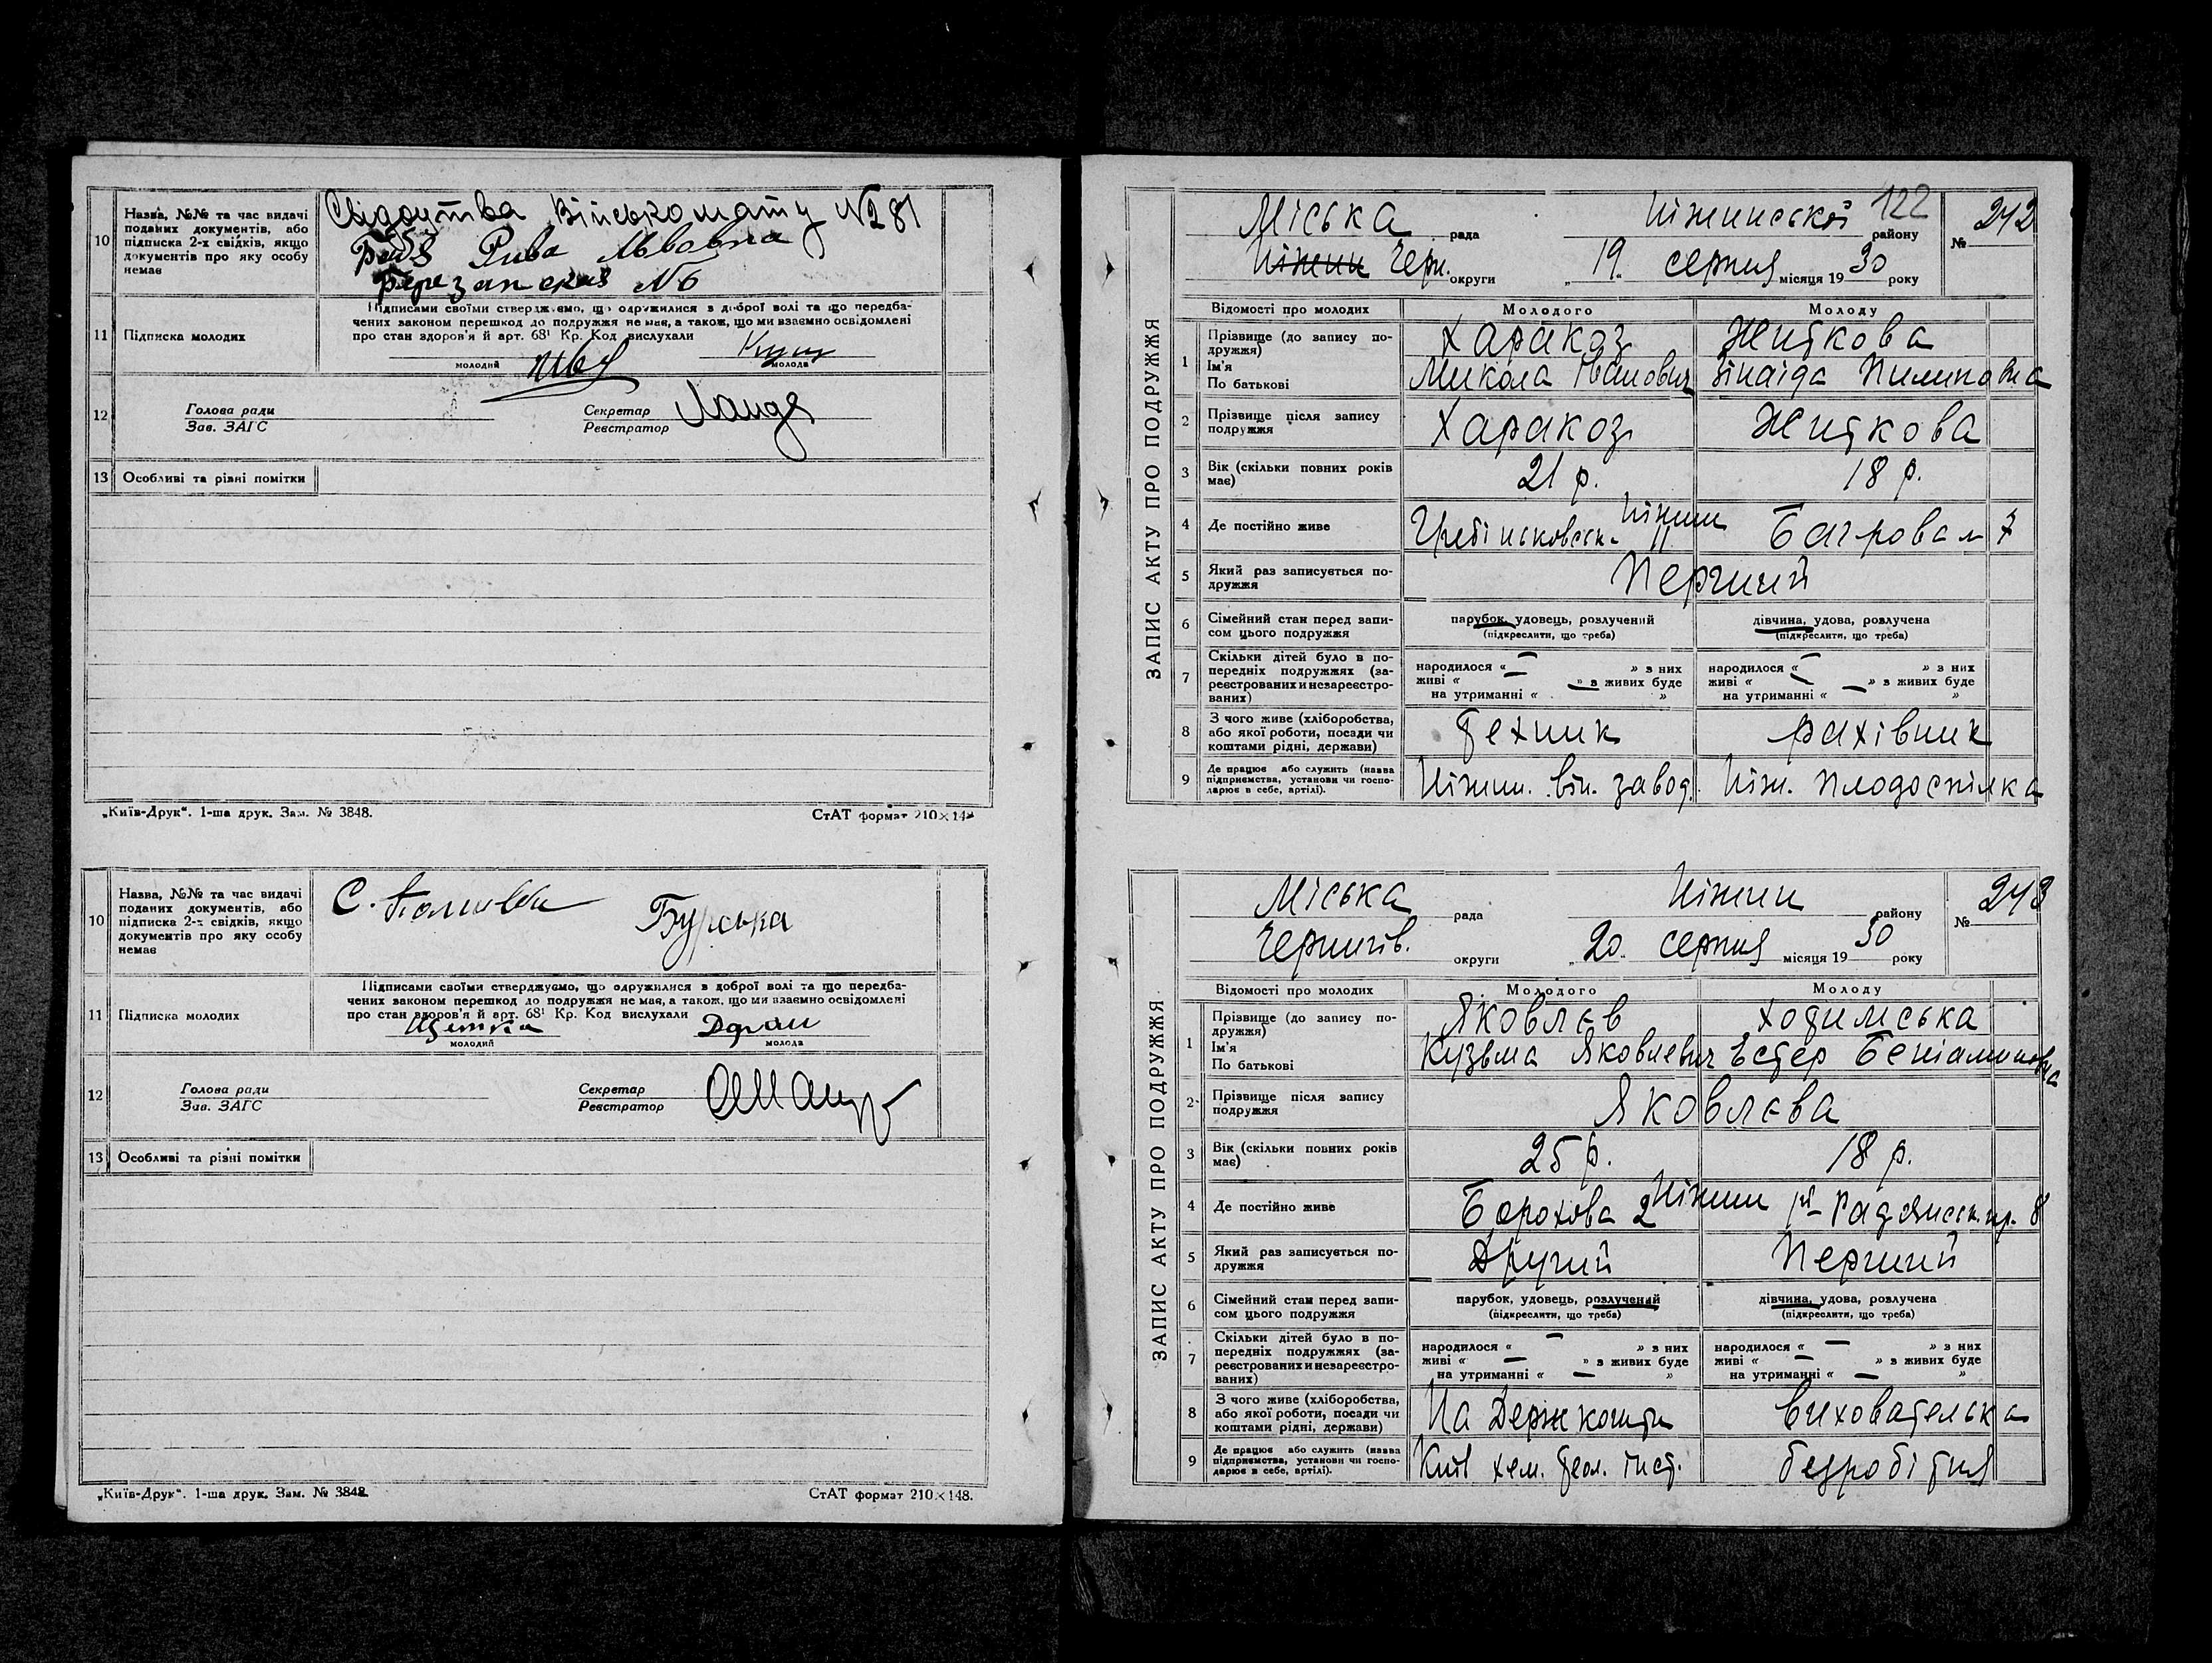 10
Назва, №№ та час видачі
поданих документів, або
підписка 2-х свідків, якщо
документів про яку особу
немає
Свідоцтва Військомату №281
Рива Львовна
Березанская №6
Підписами своїми стверджуємо, що одружилися в доброї волі та що передба-
чених законом перешкод до подружжя немає, а також, що ми взаємно освідомлені
про стан здоров'я й арт. 68¹ Кр. Код вислухали
11
Підписка молодих
молодий
молода
12
Голова ради
Зав. ЗАГС
Секретар
Реєстратор
Ланда
13
Особливі та різні помітки
„Київ-Друк“. 1-ша друк. Зам. № 3848.
СтАТ формат 210×14
10
Назва, №№ та час видачі
поданих документів, або
підписка 2-х свідків, якщо
документів про яку особу
немає
С.
Бурська
Підписами своїми стверджуємо, що одружилися в доброї волі та що передба-
чених законом перешкод до подружжя немає, а також, що ми взаємно освідомлені
про стан здоров'я й арт. 68¹ Кр. Код вислухали
11
Підписка молодих
молодий
молода
12
Голова ради
Зав. ЗАГС
Секретар
Реєстратор
13
Особливі та різні помітки
„Київ-Друк“. 1-ша друк. Зам. № 3848.
СтАТ формат 210×148.
ЗАПИС АКТУ ПРО ПОДРУЖЖЯ
Міська рада Ніжинської району 122
№ 242
Ніжин Черн. округи „19“ серпня місяця 1930 року
Відомості про молодих
Молодого
Молоду
1
Прізвище (до запису по-
дружжя)
Харакоз
Житкова
Ім'я
По батькові
Микола Іванович
Зінаїда Пилиповна
2
Прізвище після запису
подружжя
Харакоз
Житкова
3
Вік (скільки повних років
має)
21 р.
18 р.
4
Де постійно живе
Ніжин
11
Багрова 7
5
Який раз записується по-
дружжя
Перший
6
Сімейний стан перед запи-
сом цього подружжя
парубок, удовець, розлучений
(підкреслити, що треба)
дівчина, удова, розлучена
(підкреслити, що треба)
7
Скільки дітей було в по-
передніх подружжях (за-
реєстрованих и незареєстро-
ваних)
народилося « — » з них
живі « — » з живих буде
на утриманні « »
народилося « — » з них
живі « — » з живих буде
на утриманні « — »
8
З чого живе (хліборобства,
або якої роботи, посади чи
коштами рідні, держави)
технік
рахівник
9
Де працює або служить (назва
підприємства, установи чи госпо-
дарює в себе, артілі).
Ніжин. він. завод.
Ніж. Плодоспілка
ЗАПИС АКТУ ПРО ПОДРУЖЖЯ
Міська рада Ніжин району
№ 243
Чернигів. округи „20“ серпня місяця 1930 року
Відомості про молодих
Молодого
Молоду
1
Прізвище (до запису по-
дружжя)
Яковлєв
Ходимська
Ім'я
По батькові
Кузьма Яковлевич
Естер Беніаминовна
2
Прізвище після запису
подружжя
Яковлєва
3
Вік (скільки повних років
має)
25 р.
18 р.
4
Де постійно живе
Борохова 2
Ніжин
Радянськ. 8
5
Який раз записується по-
дружжя
Другий
Перший
6
Сімейний стан перед запи-
сом цього подружжя
парубок, удовець, розлучений
(підкреслити, що треба)
дівчина, удова, розлучена
(підкреслити, що треба)
7
Скільки дітей було в по-
передніх подружжях (за-
реєстрованих и незареєстро-
ваних)
народилося « — » з них
живі « — » з живих буде
на утриманні « — »
народилося « — » з них
живі « — » з живих буде
на утриманні « — »
8
З чого живе (хліборобства,
або якої роботи, посади чи
коштами рідні, держави)
На Держ кошти
вихователька
9
Де працює або служить (назва
підприємства, установи чи госпо-
дарює в себе, артілі).
Київ хем. теол. інст.
безробітня